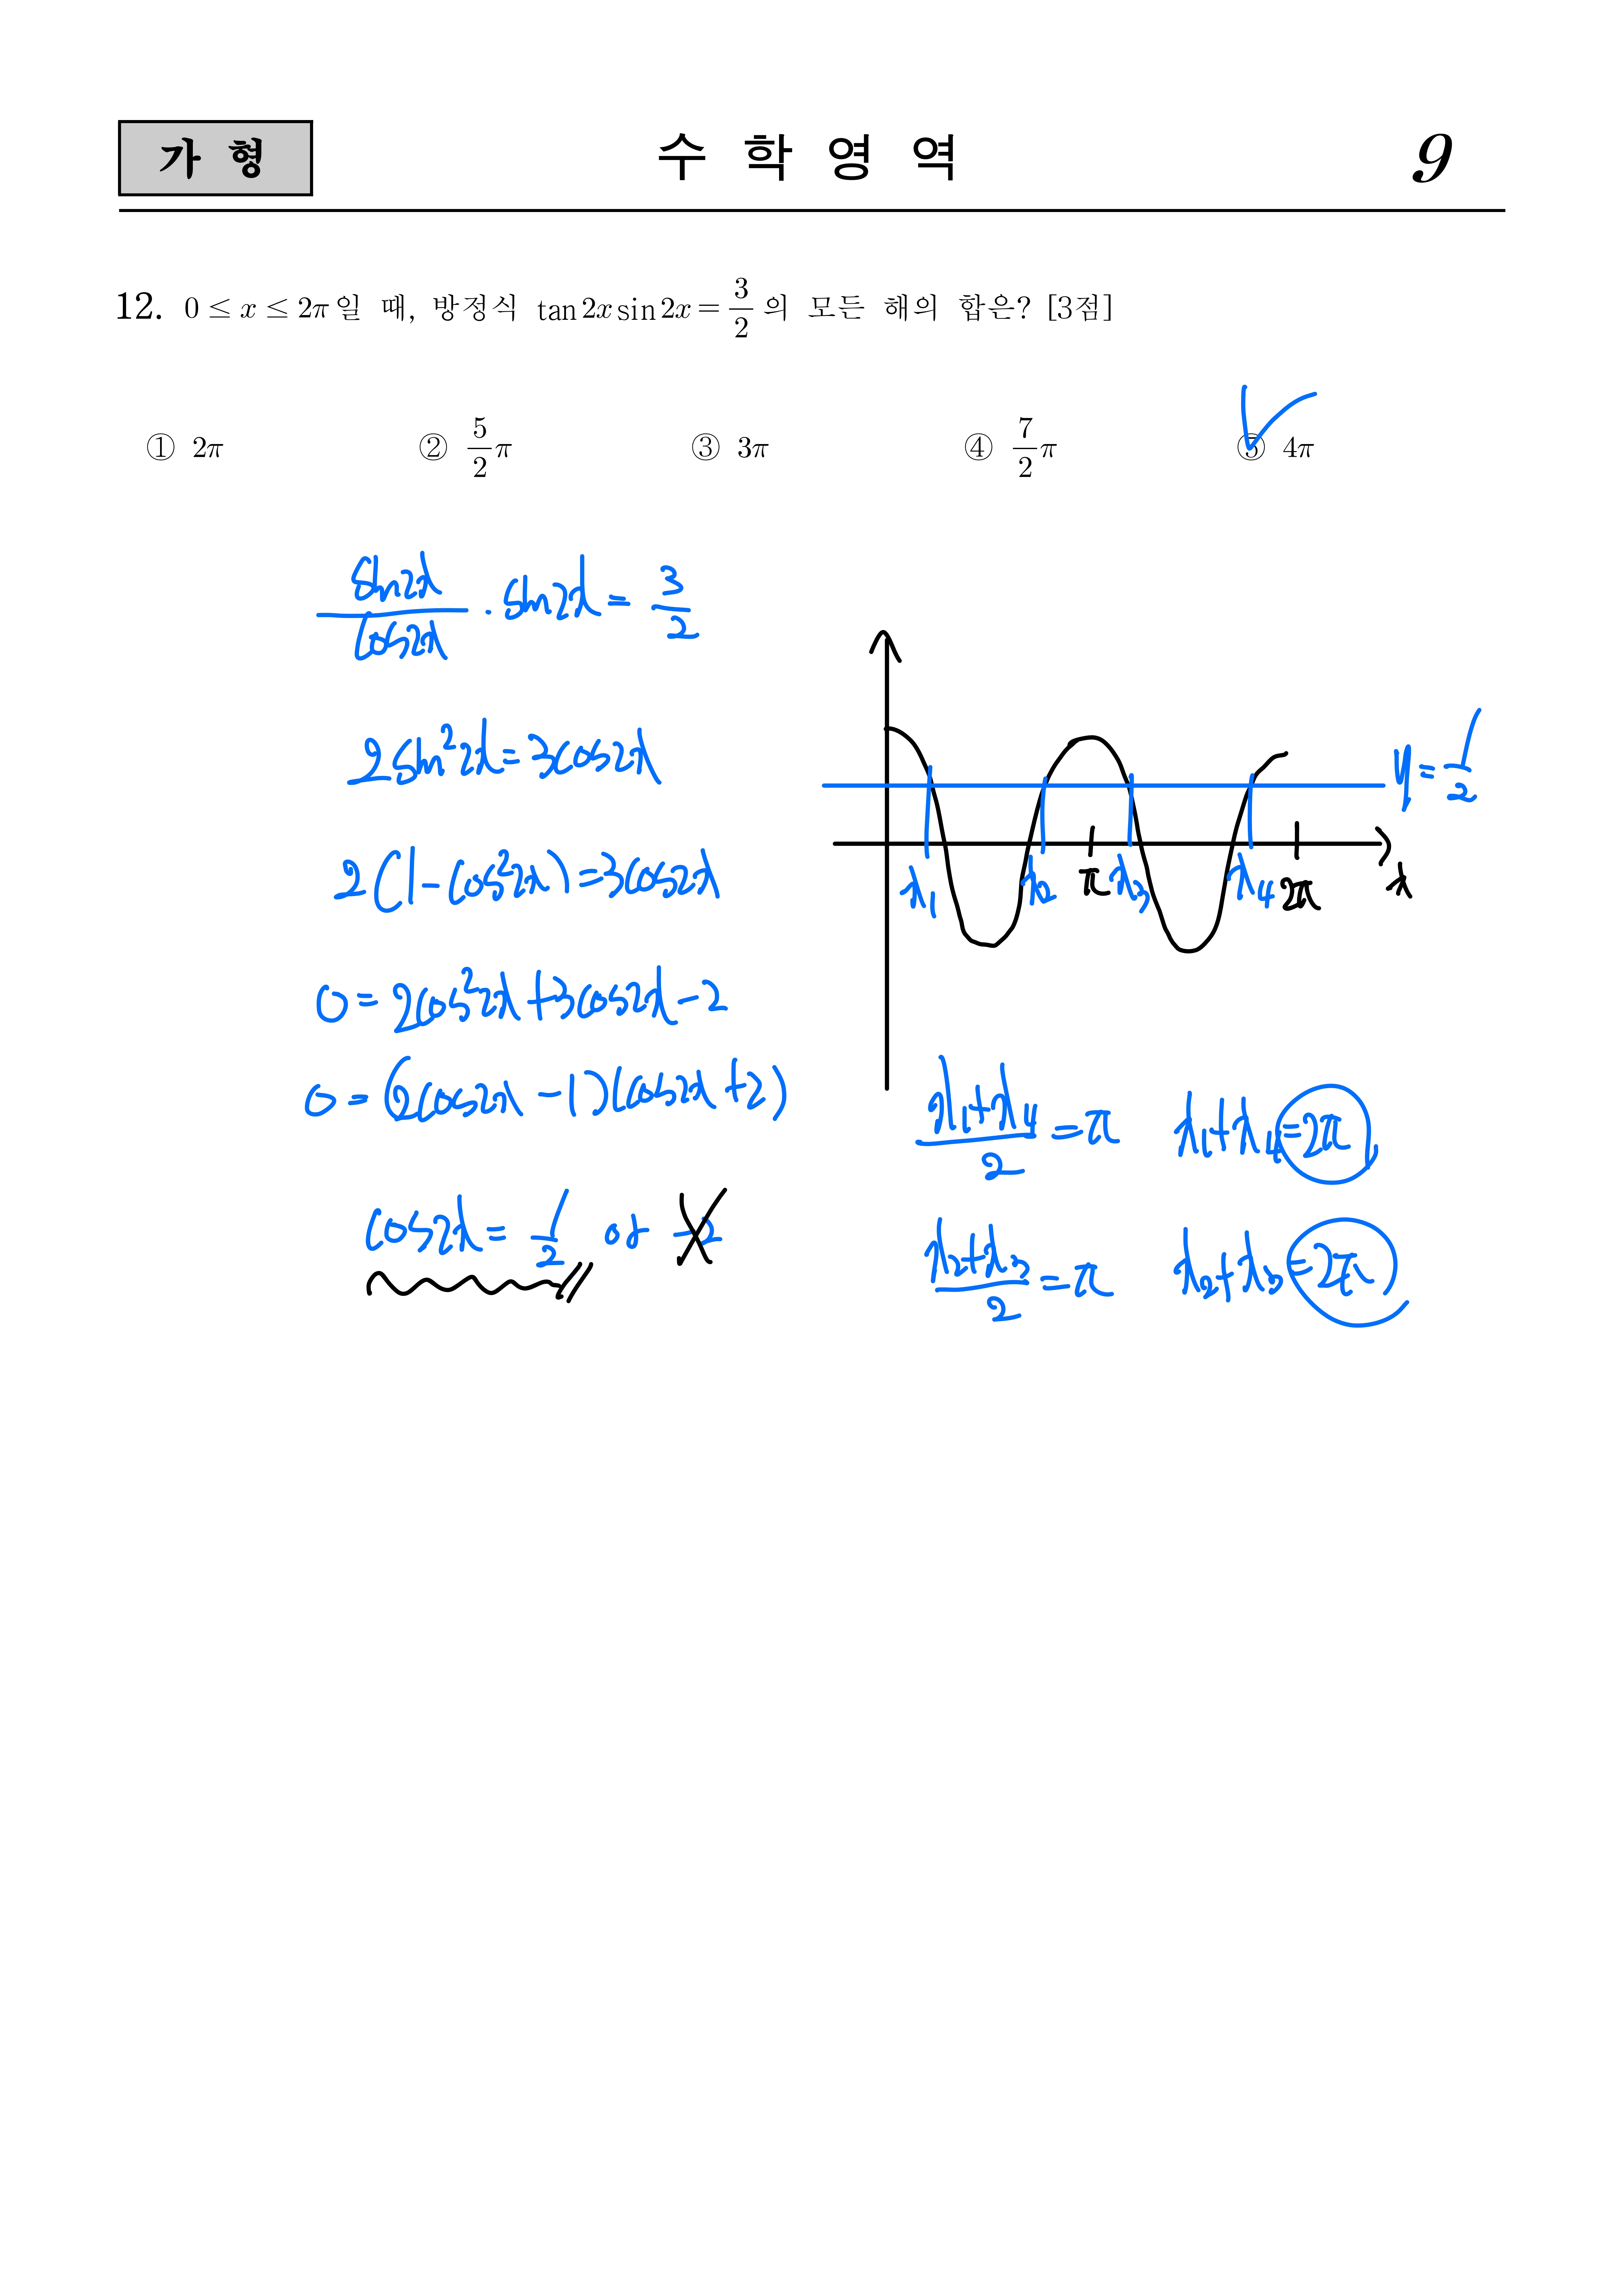 가 형
수 학 영 역
9
12. 0 ≤ x ≤ 2π일 때, 방정식 tan 2x sin 2x = 3/2 의 모든 해의 합은? [3점]
① 2π ② 5/2 π ③ 3π ④ 7/2 π ⑤ 4π
sin2x/cos2x · sin2x = 3/2
2sin²2x = 3cos2x
2(1-cos²2x) = 3cos2x
0 = 2cos²2x+3cos2x-2
0 = (2cos2x-1)(cos2x+2)
cos2x = 1/2 or -2
y = 1/2
x₁ x₂ π x₃ x₄ 2π x
(x₁+x₄)/2 = π x₁+x₄ = 2π
(x₂+x₃)/2 = π x₂+x₃ = 2π